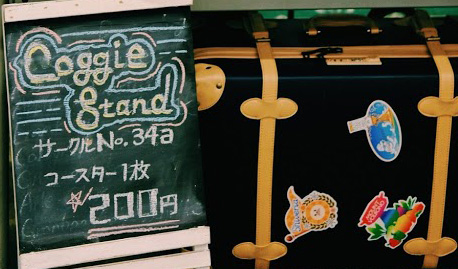 Coggie
Stand
サークルNo.34a
コースター1枚
200円